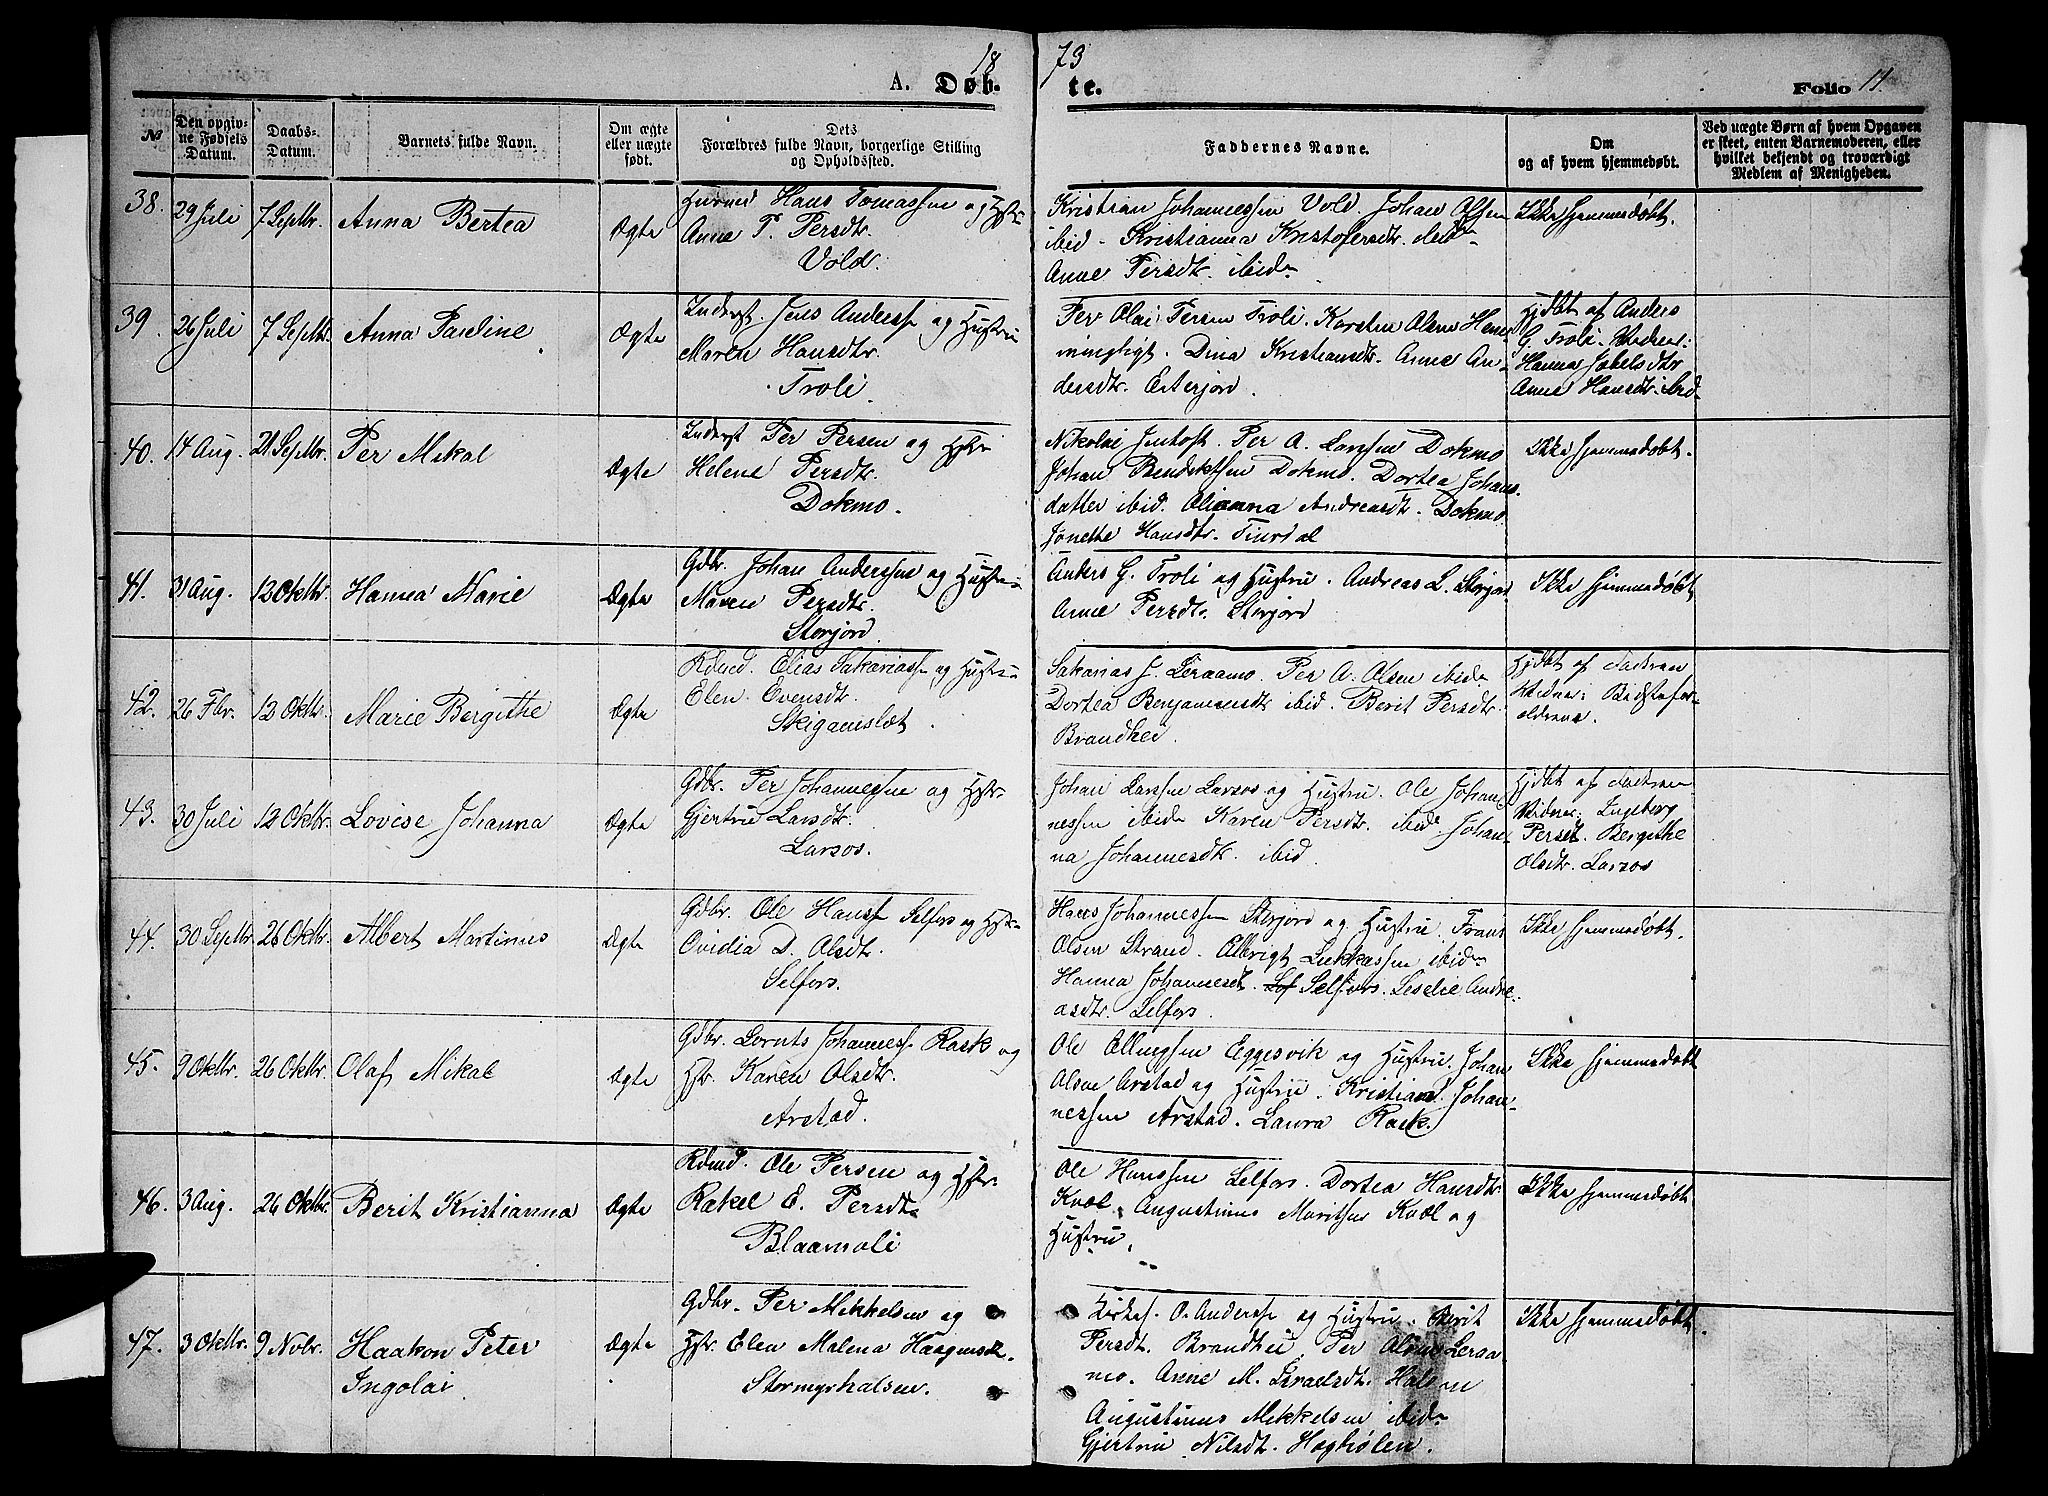 18 73
A. Døb- te. Folio 11.
№
Den opgiv-
ne Fødsels
Datum.
Daabs-
Datum.
Barnets fulde Navn.
Om ægte
eller uægte
født.
Dets
Forældres fulde Navn, borgerlige Stilling
og Opholdssted.
Faddernes Navne.
Om
og af hvem hjemmedøbt.
Ved uægte Børn af hvem Opgaven
er skeet, enten Barnemoderen, eller
hvilket bekjendt og troværdigt
Medlem af Menigheden.
38. 29 Juli 7 Septbr. Anna Bertea Ægte
Hans Tomassen og Hstr.
Anne P. Persdtr.
Vold.
Kristian Johannessen Vold. Johan Olsen
ibid. Kristianna Kristofersdtr.
Anne Persdtr. ibid
Ikke hjemmedøbt.
39. 26 Juli 7 Septbr. Anna Pauline Ægte
Inderst. Jens Anderss. og Hustru
Maren Hansdtr.
Troli.
Per Olai Persen Troli. Karsten Olsen
Dina Kristiansdtr. Anne An-
dersdtr. Esterjord.
Hjdbt af Anders
G. Troli.
Hanna
Anne Hansdtr. ibid.
40. 14 Aug. 21 Septbr. Per Mikal Ægte
Inderst Per Persen og Hstr.
Helene Persdtr.
Dokmo.
Nikolai Jentoft. Per A. Larssen Dokmo
Johan Bendiktsen Dokmo. Dortea Johans-
datter ibid. Olianna Andreasdtr. Dokmo
Jonette Hansdtr.
Ikke hjemmedøbt.
41. 31 Aug. 12 Oktbr. Hanna Marie Ægte
Gdbr. Johan Anderssen og Hustru
Maren Persdtr.
Storjord.
Anders G. Troli og Hustru. Andreas L. Storjord
Anne Persdtr. Storjord
Ikke hjemmedøbt
42. 26 Fbr. 12 Oktbr. Marie Bergithe Ægte
Rdmd. Elias Sakariass. og Hustru
Elen Evensdtr.
Skigamslæt.
Sakarias J. Leraamo. Per A. Olsen ibid
Dortea Benjaminsdtr. ibid. Berit Persdtr.
Brandhei.
Hjdbt af Faderen
Vidner: Bedstefor-
ældrene.
43. 30 Juli 12 Oktbr. Lovise Johanna Ægte
Gdbr. Per Johannessen og Hstr.
Gjertru Larsdtr.
Larsos.
Johan Larssen Larsos og Hustru. Ole Johan-
nessen ibid Karen Persdtr. ibid Johan-
na Johannesdtr. ibid.
Hjdbt af Faderen
Vidner: Ingeborg
Persdt. Bergithe
Olsdtr. Larsos
44. 30 Septbr. 26 Oktbr. Albert Martinus Ægte
Gdbr. Ole Hanss. Selfors og Hstr.
Ovidia D. Olsdtr.
Selfors.
Hans Johannessen Storjord og Hustru. Frans
Olsen Strand. Ellerigt Lukkassen ibid
Hanna Johannesdt. Selfors. Andre-
asdtr. Selfors.
Ikke hjemmedøbt.
45. 9 Oktbr. 26 Oktbr. Olaf Mikal Ægte
Gdbr. Lornts Johanness. Rask og
Hstr. Karen Olsdtr.
Arstad.
Ole Ellingsen Eggesvik og Hustru. Johan
Olsen Arstad og Hustru. Kristian Johan-
nessen Arstad. Laura Rask.
Ikke hjemmedøbt
46. 3 Aug. 26 Oktbr. Berit Kristianna Ægte
Rdmd. Ole Persen og Hstr.
Rakel E. Persdtr.
Blaamoli
Ole Hanssen Selfors. Dortea Hansdtr.
Kvæl. Augustinus Moritsen Kvæl og
Hustru.
Ikke hjemmedøbt
47. 3 Oktbr. 9 Novbr. Haakon Peter Ægte
Ingolai
Gdbr. Per Mikkelsen og
Hstr. Elen Malena Haagensdt.
Stormyrhalsen.
O. Anderss. og Hustru. Berit
Persdt. Brandhei Per Olsen Leraa-
mo. Anne M. Israelsdt. Halsen
Augustinus Mikkelsen ibid
Gjertru Nilsdt. Haghølen.
Ikke hjemmedøbt.